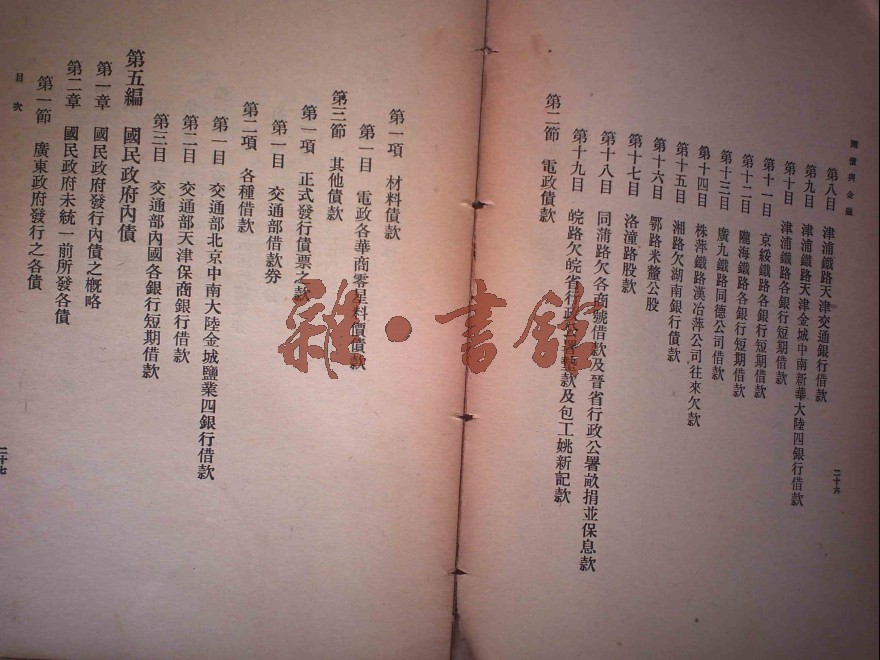 國債與金融
第八目 津浦鐵路天津交通銀行借款
第九目 津浦鐵路天津金城中南新華大陸四銀行借款
第十目 津浦鐵路各銀行短期借款
第十一目 京綏鐵路各銀行短期借款
第十二目 隴海鐵路各銀行短期借款
第十三目 廣九鐵路同德公司借款
第十四目 株萍鐵路漢冶萍公司往來欠款
第十五目 湘路欠湖南銀行債款
第十六目 鄂路米釐公股
第十七目 洛潼路股款
第十八目 同蒲路欠各商號借款及晉省行政公署畝捐並保息款
第十九目 皖路欠皖省行政公署墊款及包工姚新記款
第二節 電政債款
二十六
第一項 材料債款
第一目 電政各華商零星料價債款
第三節 其他債款
第一項 正式發行債票之款
第一目 交通部借款券
第二項 各種借款
第一目 交通部北京中南大陸金城鹽業四銀行借款
第二目 交通部天津保商銀行借款
第三目 交通部內國各銀行短期借款
第五編 國民政府內債
第一章 國民政府發行內債之概略
第二章 國民政府未統一前所發各債
第一節 廣東政府發行之各債
目次
二十七
雜·書館